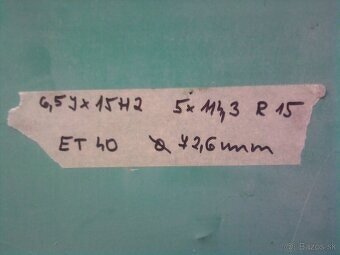 6,5Jx15H2 5x114,3 R 15
ET 40 ⌀ 72,6mm
Bazos.sk